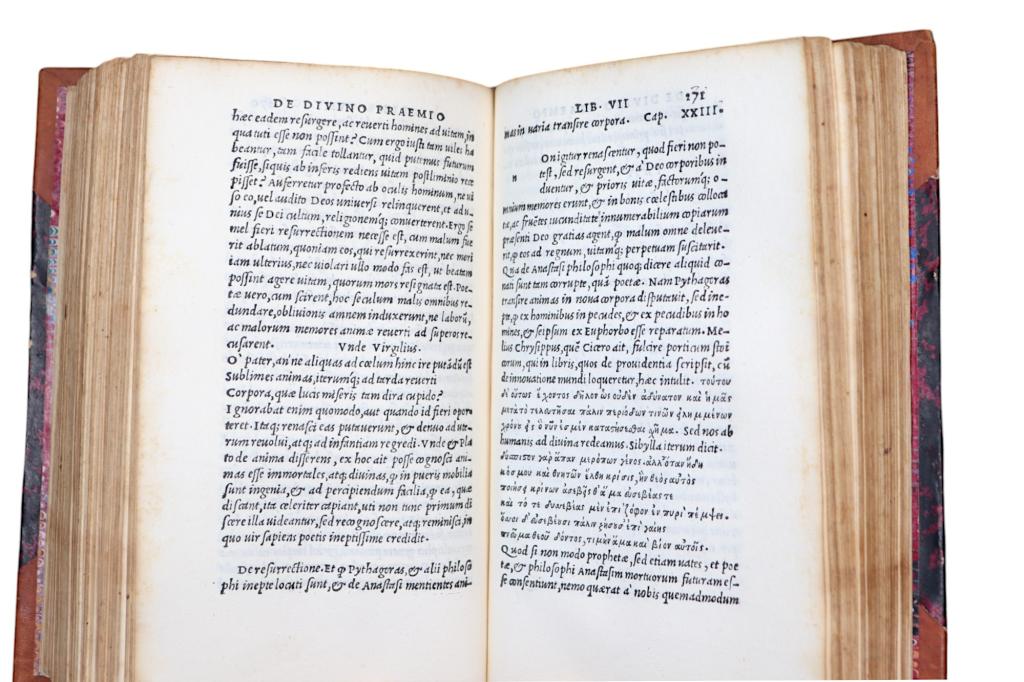 DE DIVINO PRAEMIO
hæc eadem resurgere, ac reverti homines ad uitam, in
qua tuti esse non possint? Cum ergo iusti tam uiles ha
beantur, tam facile tollantur, quid putemus futurum
fuisse, siquis ab inferis rediens uitam postliminio rece
pisset? Auferretur profecto ab oculis hominum, ne ui
so eo, uel audito Deos universi relinquerent, et ad u-
nius se Dei cultum, religionemq; converterent. Ergo se
mel fieri resurrectionem necesse est, cum malum fue
rit ablatum, quoniam eos, qui resurrexerint, nec mori
iam ulterius, nec violari ullo modo fas est, ut beatam
possint agere vitam, quorum mors resignata est. Poe-
tæ vero, cum scirent, hoc seculum malis omnibus re-
dundare, oblivionis amnem induxerunt, ne laborũ,
ac malorum memores animæ reverti ad superos re-
cusarent. Vnde Virgilius.
O' pater, an'ne aliquas ad cœlum hinc ire putãdũ est
Sublimes animas, iterumq; ad tarda reverti
Corpora, quæ lucis miseris tam dira cupido?
Ignorabat enim quomodo, aut quando id fieri opor
teret. Itaq; renasci eas putaverunt, & denuo ad ute-
rum revolui, atq; ad infantiam regredi. Vnde & Pla
to de anima differens, ex hoc ait posse cognosci ani-
mas esse immortales, atq; divinas, ꝙ in pueris mobilia
sunt ingenia, & ad percipiendum facilia, ꝙ ea, quæ
discant, ita celeriter capiant, uti non tunc primum di
scere illa videantur, sed recognoscere, atq; reminisci, in
quo vir sapiens poetis ineptissime credidit.
De resurrectione. Et ꝙ Pythagoras, & alii philoso
phi inepte locuti sunt, & de Anastasi mentientes ani-
LIB. VII 271
mas in varia transire corpora. Cap. XXIII.
n
On igitur renascentur, quod fieri non po-
test, sed resurgent, & a' Deo corporibus in
duentur, & prioris vitæ, factorumq; o-
mnium memores erunt, & in bonis cœlestibus collocati
tæ, ac fruentes iucunditate innumerabilium copiarum
præsenti Deo gratias agent, ꝙ malum omne deleve-
rit, ꝙ eos ad regnum, vitamq; perpetuam suscitarit.
Qua de Anastasi philosophi quoq; dicere aliquid co-
nati sunt tam corrupte, quã poetæ. Nam Pythagoras
transire animas in nova corpora disputavit, sed inep-
te, ꝙ ex hominibus in pecudes, & ex pecudibus in ho
mines, & seipsum ex Euphorbo esse reparatum. Me-
lius Chrysippus, quẽ Cicero ait, fulcire porticum stoi
corum, qui in libris, quos de providentia scripsit, cũ
de innovatione mundi loqueretur, hæc intulit. τούτου
δὲ οὕτως ἔχοντος δῆλον ὡς οὐδὲν ἀδύνατον καὶ ἡμᾶς
μετὰ τὸ τελευτῆσαι πάλιν περιόδων τινῶν
Sed nos ab
humanis ad divina redeamus. Sibylla iterum dicit.
μερόπων γένος. ἀλλ' ὅταν ἤδη
κόσμου καὶ θνητῶν ἔλθη κρίσις, ἣν θεὸς αὐτὸς
ποιήσῃ κρίνων ἀσεβῆς θ' ἅμα εὐσεβέας τε
καὶ τότε
Quod si non modo prophetæ, sed etiam uates, et poe
tæ, & philosophi Anastasim mortuorum futuram es-
se consentiunt, nemo quærat a' nobis quemadmodum